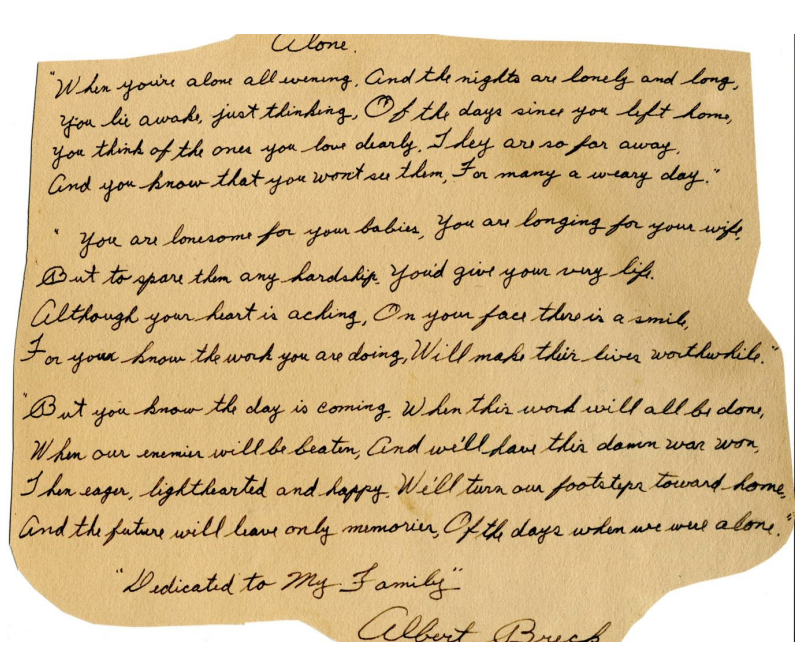 Alone.
"When you're alone all evening, And the nights are lonely and long,
You lie awake, just thinking, Of the days since you left home,
You think of the ones you love dearly, They are so far away,
And you know that you won't see them, For many a weary day."
" You are lonesome for your babies, You are longing for your wife,
But to spare them any hardship, You'd give your very life.
Although your heart is aching, On your face there is a smile,
For you know the work you are doing, Will make their lives worthwhile."
"But you know the day is coming, When this work will all be done,
When our enemies will be beaten, And we'll have this damn war won,
Then eager, lighthearted and happy, We'll turn our footsteps toward home,
And the future will leave only memories, Of the days when we were alone."
"Dedicated to My Family"
Albert Breck